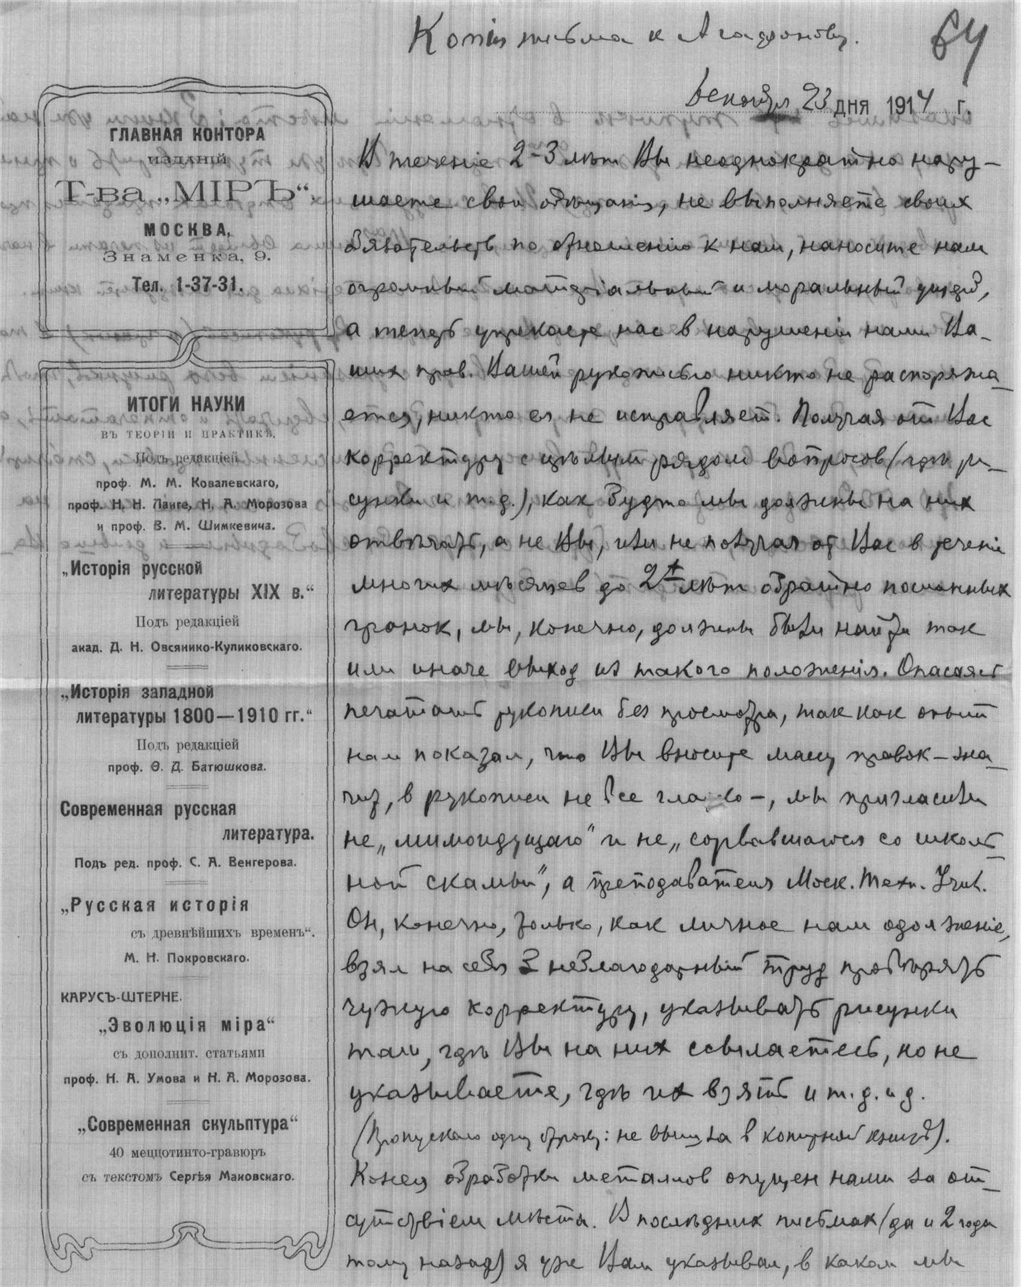 Копія письма к Агафонову.
64
Декабря 23 дня 1914 г.
ГЛАВНАЯ КОНТОРА
изданій
Т-ва „МІРЪ“.
МОСКВА,
Знаменка, 9.
Тел. 1-37-31.
ИТОГИ НАУКИ
въ теоріи и практикѣ.
Подъ редакціей
проф. М. М. Ковалевскаго,
проф. Н. Н. Ланге, Н. А. Морозова
и проф. В. М. Шимкевича.
„Исторія русской
литературы XIX в.“
Подъ редакціей
акад. Д. Н. Овсянико-Куликовскаго.
„Исторія западной
литературы 1800—1910 гг.“
Подъ редакціей
проф. Ѳ. Д. Батюшкова.
Современная русская
литература.
Подъ ред. проф. С. А. Венгерова.
„Русская исторія
съ древнѣйшихъ временъ“.
М. Н. Покровскаго.
КАРУСЪ-ШТЕРНЕ.
„Эволюція міра“
съ дополнит. статьями
проф. Н. А. Умова и Н. А. Морозова.
„Современная скульптура“
40 меццотинто-гравюръ
съ текстомъ Сергѣя Маковскаго.
В теченіе 2-3 лѣт Вы неоднократно нару-
шаете свои обѣщанія, не выполняете своих
обязательств по отношенію к нам, наносите нам
огромный матеріальный и моральный ущерб,
а теперь упрекаете нас в нарушеніи нами Ва-
ших прав. Вашей рукописью никто не распоряжа-
ется, никто ея не исправляет. Получая от Вас
корректуру с цѣлым рядом вопросов (гдѣ ри-
сунки и т.д.), как будто мы должны на них
отвѣчать, а не Вы, или не получая от Вас в теченіе
многих мѣсяцев до 2х лѣт обратно посланных
гранок, мы, конечно, должны были найти так
или иначе выход из такого положенія. Опасаясь
печатать рукописи без просмотра, так как опыт
нам показал, что Вы вносите массу правок – зна-
чит, в рукописи не все гладко –, мы пригласили
не „мимоидущаго“ и не „сорвавшагося со школь-
ной скамьи“, а преподавателя Моск. Техн. Учил.
Он, конечно, только, как личное нам одолженіе,
взял на себя неблагодарный труд провѣрять
чужую корректуру, указывать рисунки
там, гдѣ Вы на них ссылаетесь, но не
указываете, гдѣ их взять и т.д. и д.
(Пропускаю одну строку: не вышла в копирной книгѣ).
Конец обработки металлов опущен нами за от-
сутствіем мѣста. В послѣдних письмах (да и 2 года
тому назад) я уже Вам указывал, в каком мы